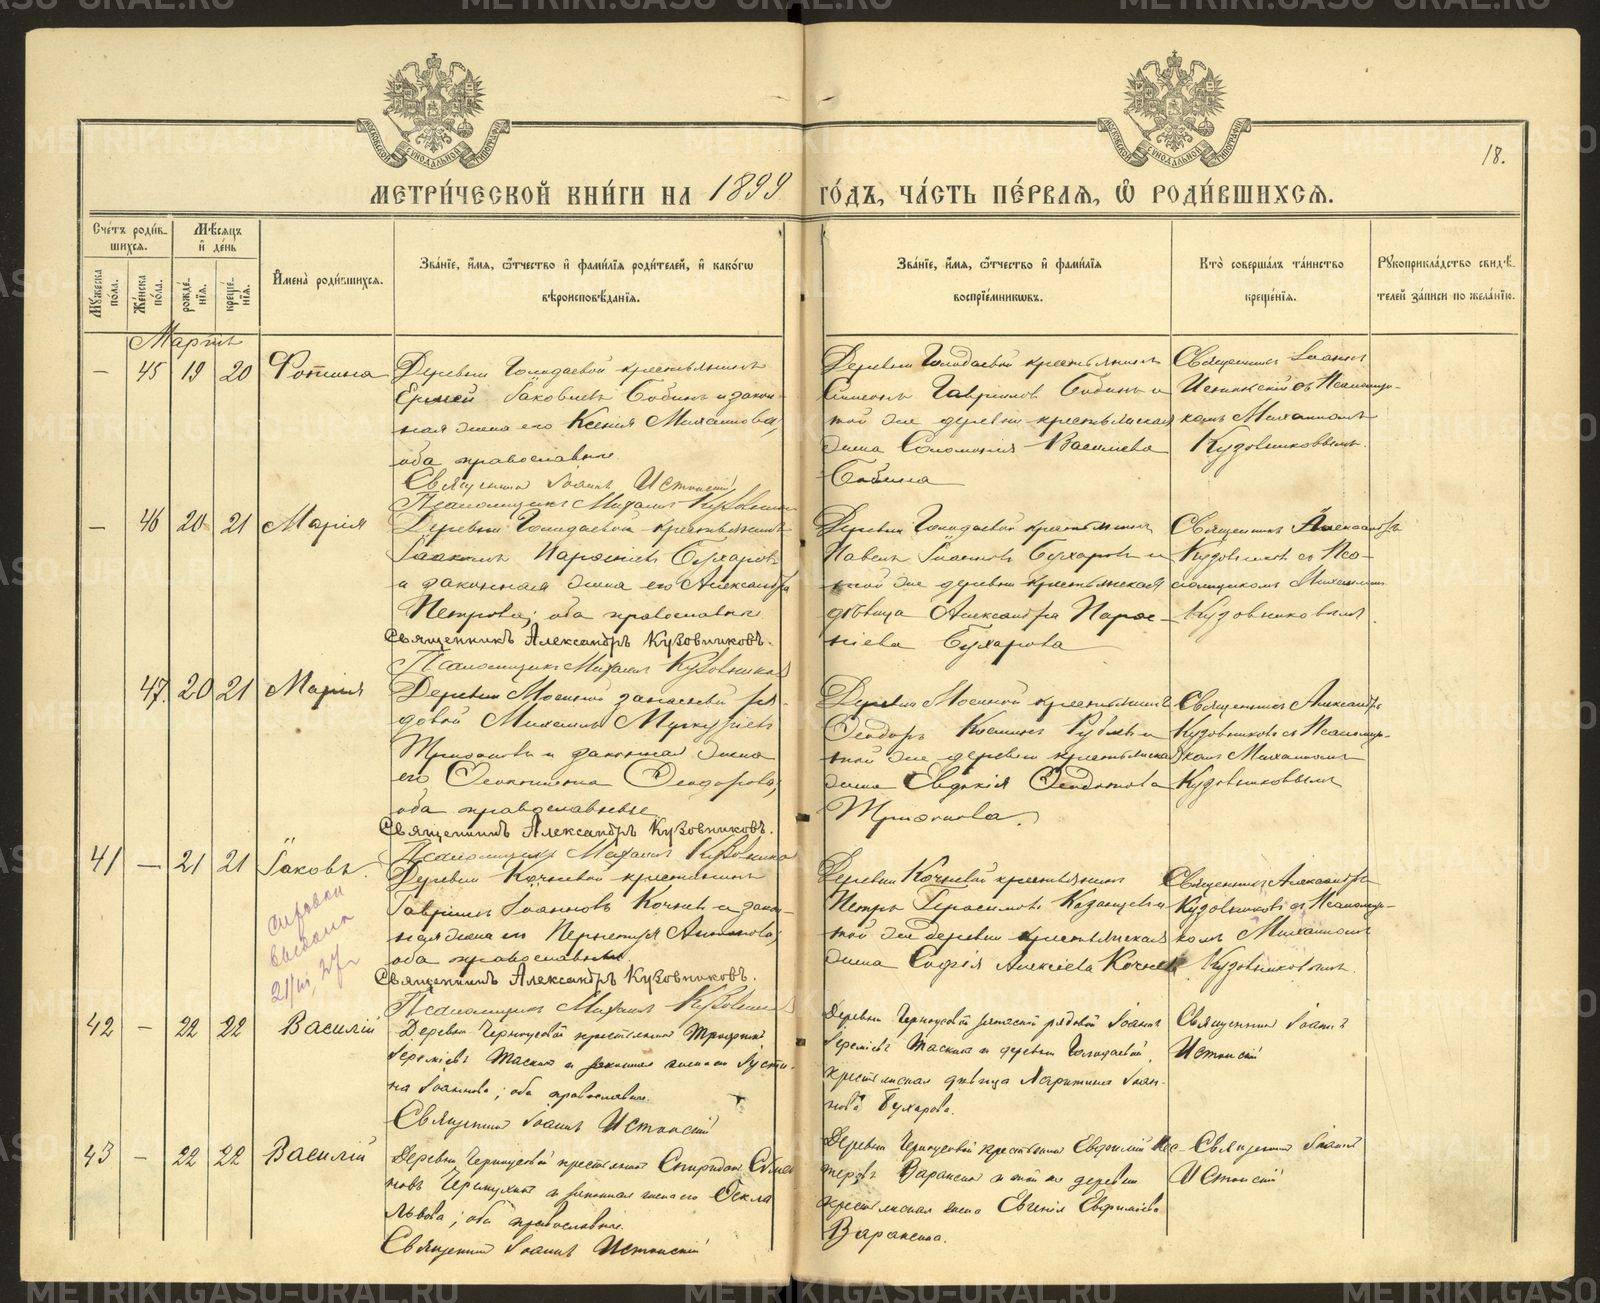 МЕТРИ́ЧЕСКОЙ КНИ́ГИ НА 1899 ГО́ДЪ, ЧА́СТЬ ПЕ́РВАѦ, Ѡ҆ РОДИ́ВШИХСѦ.
18.
Сче́тъ роди́в-
шихсѧ.
Мѣ́сѧцъ
и҆ де́нь
Мꙋ́жеска по́ла.
Же́нска по́ла.
рожде́-
нїѧ.
креще́-
нїѧ.
И҆мена̀ роди́вшихсѧ.
Зва́нїе, и҆́мѧ, ѻ҆́тчество и҆ фами́лїѧ роди́телей, и҆ како́гѡ
вѣроисповѣ́данїѧ.
Зва́нїе, и҆́мѧ, ѻ҆́тчество и҆ фами́лїѧ
воспрїе́мникѡвъ.
Кто̀ соверша́лъ та́инство
креще́нїѧ.
Рꙋкоприкла́дство свидѣ́-
телей за́писи по жела́нїю.
Мартъ
— 45 19 20 Фотина
Деревни Голодаевой крестьянинъ
Ермей Іаковлевъ Бабинъ и закон-
ная жена его Ксения Михаилова,
оба православные
Священникъ Іоаннъ Истинскій
Псаломщикъ Михаилъ Кузовников
Деревни Голодаевой крестьянинъ
Симеонъ Гавриловъ Бабинъ и
той же деревни крестьянская
жена Соломонія Василиева
Бабина
Священникъ Іоаннъ
Истинскій съ Псаломщи-
комъ Михаиломъ
Кузовниковымъ
— 46 20 21 Марія
Деревни Голодаевой крестьянинъ
Бухаровъ
и законная жена его Александра
Петрова; оба православные
Священникъ Александръ Кузовниковъ.
Псаломщикъ Михаилъ Кузовников
Деревни Голодаевой крестьянинъ
Павелъ Іоанновъ Бухаровъ и
той же деревни крестьянская
дѣвица Александра
Бухарова
Священникъ Александръ
Кузовниковъ съ Пса-
ломщикомъ Михаиломъ
Кузовниковымъ
47. 20 21 Марія
Деревни Мосиной запасный ря-
довой Михаилъ
и законная жена
его Ѳеодорова,
оба православные
Священникъ Александръ Кузовниковъ.
Псаломщикъ Михаилъ Кузовников
Деревни Мосиной крестьянинъ
Ѳеодоръ и
той же деревни крестьянская
жена Евдокія
Священникъ Александръ
Кузовниковъ съ Псаломщи-
комъ Михаиломъ
Кузовниковымъ
41 — 21 21 Іаковъ.
справка
выдана
Деревни Кочневой крестьянинъ
Гавріилъ Іоанновъ Кочневъ и закон-
ная жена его Перпетуя Антонова;
оба православные
Священникъ Александръ Кузовниковъ.
Псаломщикъ Михаилъ Кузовников
Деревни Кочневой крестьянинъ
Петръ Герасимовъ Казанцевъ и
той же деревни крестьянская
жена Софія Алексіева
Священникъ Александръ
Кузовниковъ съ Псаломщи-
комъ Михаиломъ
Кузовниковымъ.
42 — 22 22 Василій
Деревни Черноусовой крестьянинъ Трифонъ
Іереміевъ Таскинъ и законная жена его Іусти-
на Іоаннова; оба православные.
Священникъ Іоаннъ Истинскій
Деревни Черноусовой запасной рядовой Іоаннъ
Іереміевъ Таскинъ и деревни Голодаевой
крестьянская дѣвица Іоан-
нова Бухарова.
Священникъ Іоаннъ
Истинскій
43 — 22 22 Василій
Деревни Черноусовой крестьянинъ Спиридонъ
и законная жена его Ѳекла
Львова; оба православные.
Священникъ Іоаннъ Истинскій
Деревни Черноусовой крестьянинъ Евфимій Нес-
теровъ Вараксинъ и той же деревни
крестьянская жена Евгенія Евфиміева
Вараксина.
Священникъ Іоаннъ
Истинскій
METRIKI.GASO-URAL.RU